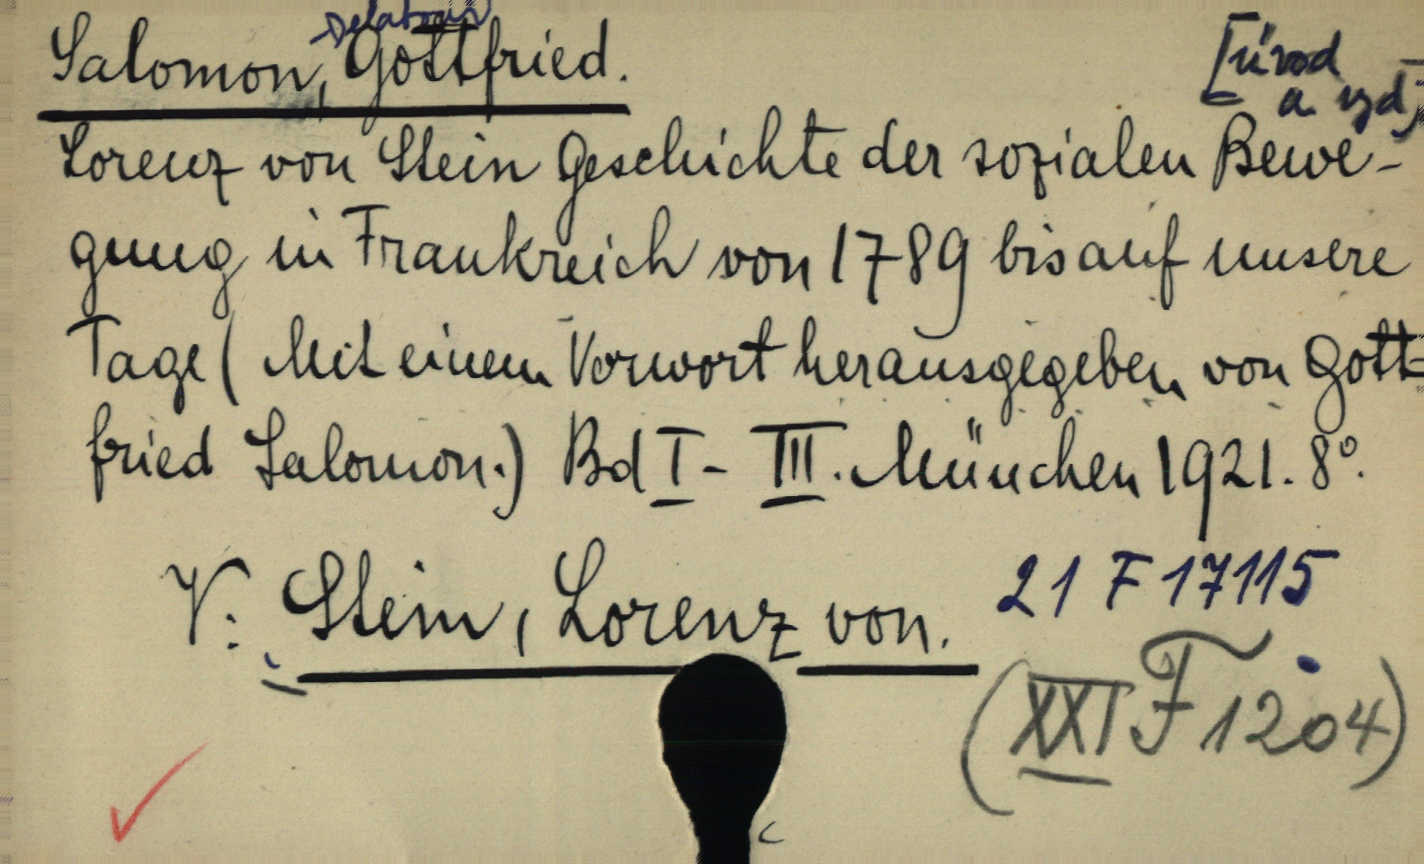 Salomon, -Delatour Gottfried. [úvod
a vyd]
Lorenz von Stein Geschichte der sozialen Bewe-
gung in Frankreich von 1789 bis auf unsere
Tage (Mit einem Vorwort herausgegeben von Gott-
fried Salomon.) Bd I - III. München 1921. 8°.
V: Stein, Lorenz von. 21 F 17115
(XXI F 1204)